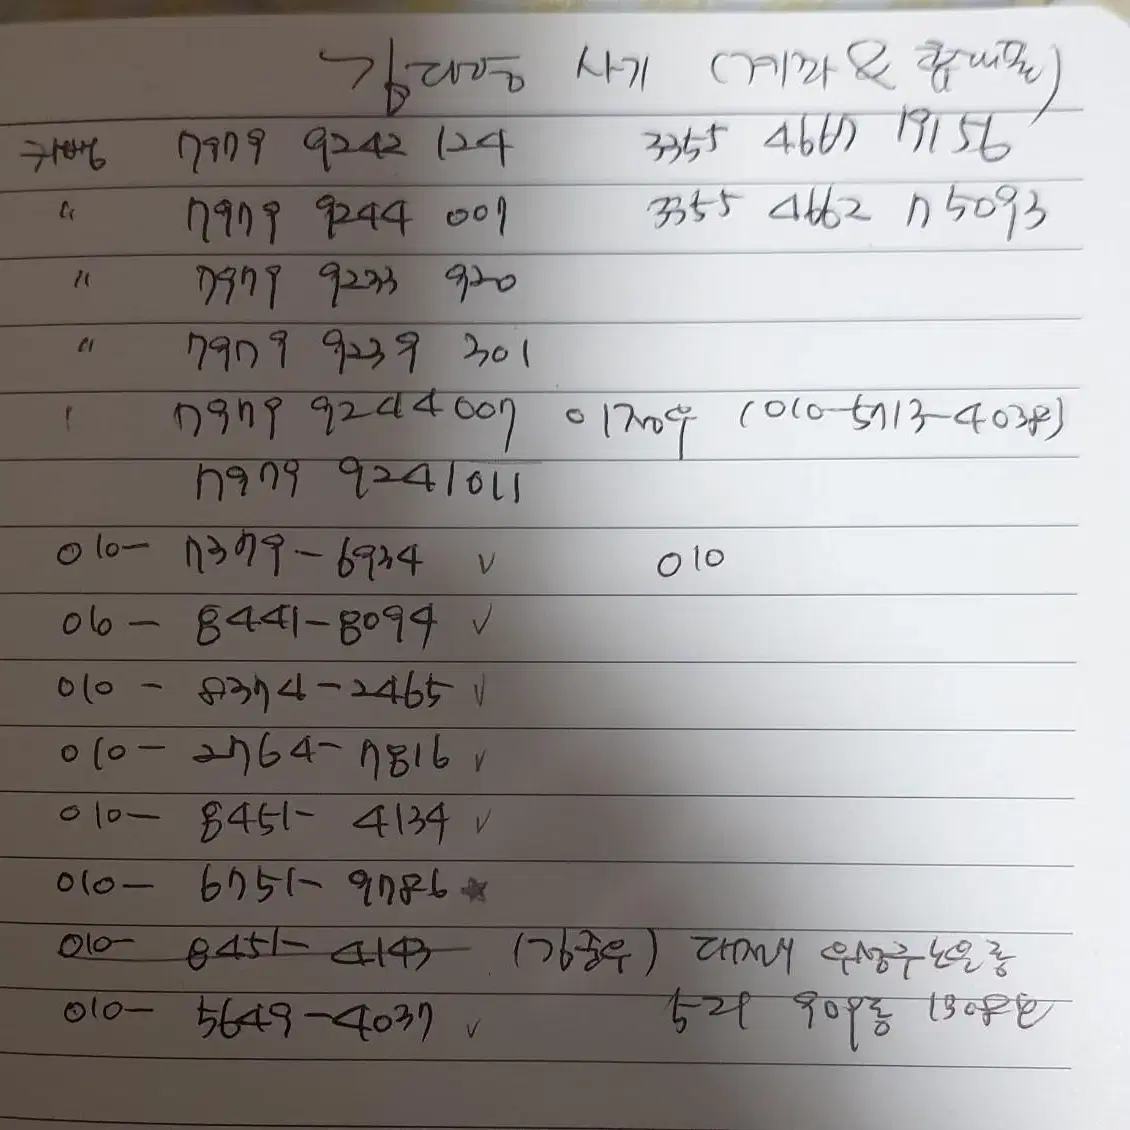 사기 (계좌 & 폰번호)
7979 9242 124 3355 4667 19156
" 7979 9244 007 3355 4662 75093
" 7979 9233 920
" 7979 9239 301
7979 9244 007 (010-5713-4038)
7979 9241011
010- 7379-6934 ✓ 010
010- 8441-8094 ✓
010- 8374-2465 ✓
010- 2764-7816 ✓
010- 8451- 4134 ✓
010- 6751-9786 ★
010- 8451- 4143
010- 5649-4037 ✓